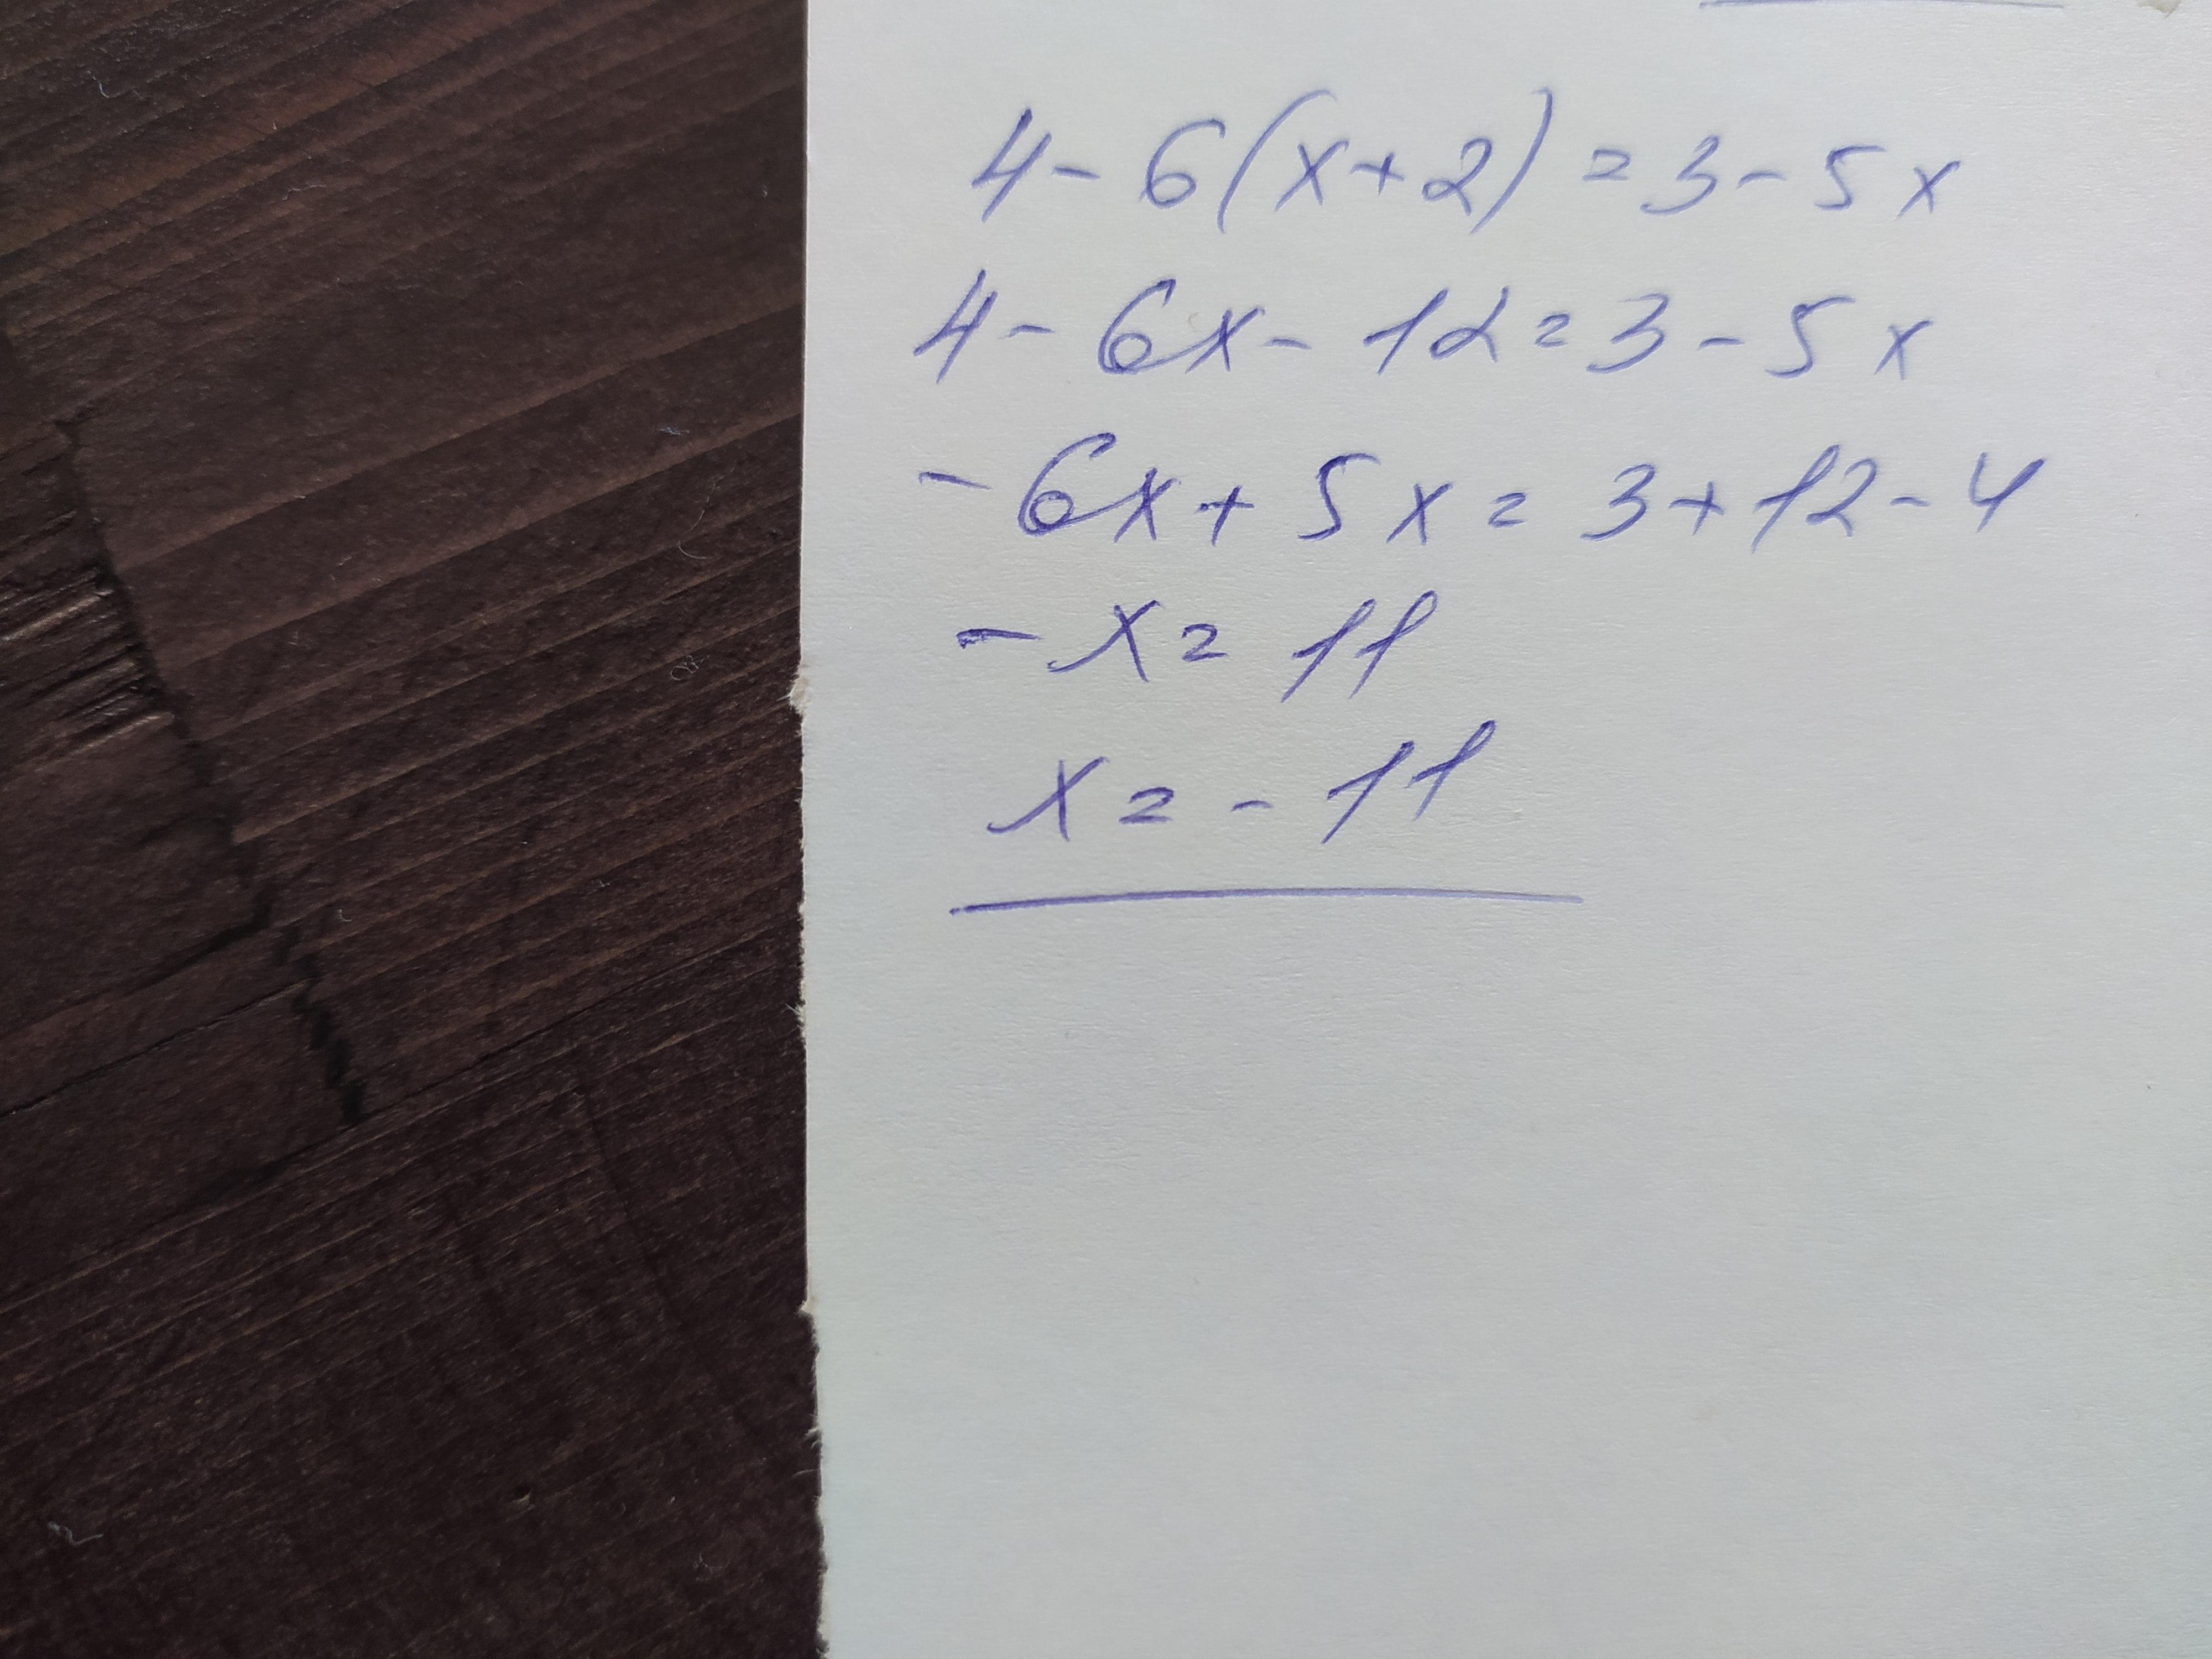 4 - 6(x+2) = 3 - 5x
4 - 6x - 12 = 3 - 5x
- 6x + 5x = 3 + 12 - 4
- x = 11
x = - 11